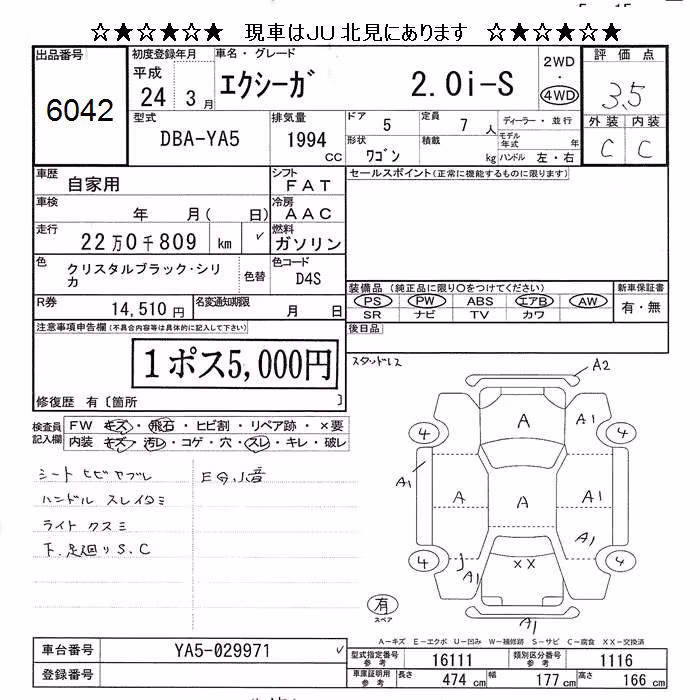 ☆★☆★☆★ 現車はJU 北見にあります ☆★☆★☆★
出品番号
6042
初度登録年月
平成
24 3 月
車名・グレード
エクシーガ 2.0i-S
2WD
・
4WD
評 価 点
3.5
外 装 内 装
C C
型式
DBA-YA5
排気量
1994
cc
ドア
5
定員
7 人
形状
ワゴン
積載
kg
ディーラー・並行
モデル
年式 年
ハンドル 左・右
車歴
自家用
シフト
FAT
車検
年 月( 日)
冷房
AAC
走行
22万0千809 km ✓
燃料
ガソリン
色
クリスタルブラック・シリ
カ
色替
色コード
D4S
R券
14,510 円
名変通知期限
月 日
セールスポイント(正常に機能するものに限ります)
装備品 (純正品に限り〇をつけてください)
PS PW ABS エアB AW
SR ナビ TV カワ
新車保証書
有・無
後日品
注意事項申告欄(不具合内容等は具体的に記入して下さい)
1ポス5,000円
修復歴 有〔箇所 〕
検査員
記入欄
FW キズ・飛石・ヒビ割・リペア跡・×要
内装 キズ・汚レ・コゲ・穴・スレ・キレ・破レ
シート ヒビ ヤブレ
ハンドル スレ イタミ
ライト クスミ
下.足廻り S.C
スタッドレス
A2
A
A1
4
4
A1
A
A
A1
A1
4
A1
××
4
A1
有
スペア
A-キズ E-エクボ U-凹み W-補修跡 S-サビ C-腐食 XX-交換済
車台番号
YA5-029971 ✓
登録番号
型式指定番号
参 考
16111
類別区分番号
参 考
1116
車庫証明用
参 考
長さ
474 cm
幅
177 cm
高さ
166 cm